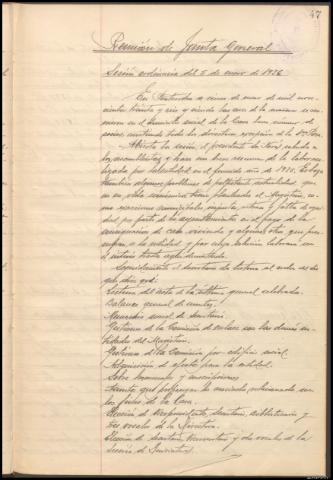 47
Reunión de Junta General
Sesión ordinaria del 5 de enero de 1936
En Pontevedra a cinco de enero de mil nove-
cientos treinta y seis y siendo las once de la mañana se
en el domicilio social de la Casa buen número de
socios, asistiendo toda la directiva excepción de la
Abierta la sesión, el presidente Sr. saluda a
los asambleístas y hace un breve resumen de la labor rea-
lizada por la entidad en el pasado año de 1935. Esboza
también algunos problemas de palpitante actualidad que
en su vida económica tiene planteados el Magisterio, co-
mo
por parte de los ayuntamientos en el pago de la
consignación de casa vivienda y algunos otros que preo-
cupan a la entidad y por cuya solución laborará con
el interés hasta aquí demostrado.
Seguidamente el Secretario da lectura al orden del día
que dice así:
Lectura del acta de la última general celebrada.
Balance general de cuentas.
Memoria anual de Secretaría.
Gestiones de la Comisión de enlace con las demás en-
tidades del Magisterio.
Gestiones de la Comisión pro-edificio social.
Adquisición de efectos para la entidad.
Sobre y suscripciones.
Asuntos que propongan los asociados relacionados con
los fines de la Casa.
Elección de Vicepresidente, Secretario, Bibliotecario y
tres vocales de la Directiva.
Elección de Secretario, y dos vocales de la
Sección de Socorros.